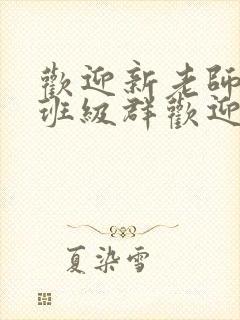 歡迎新老師
班級群歡迎
夏染雪